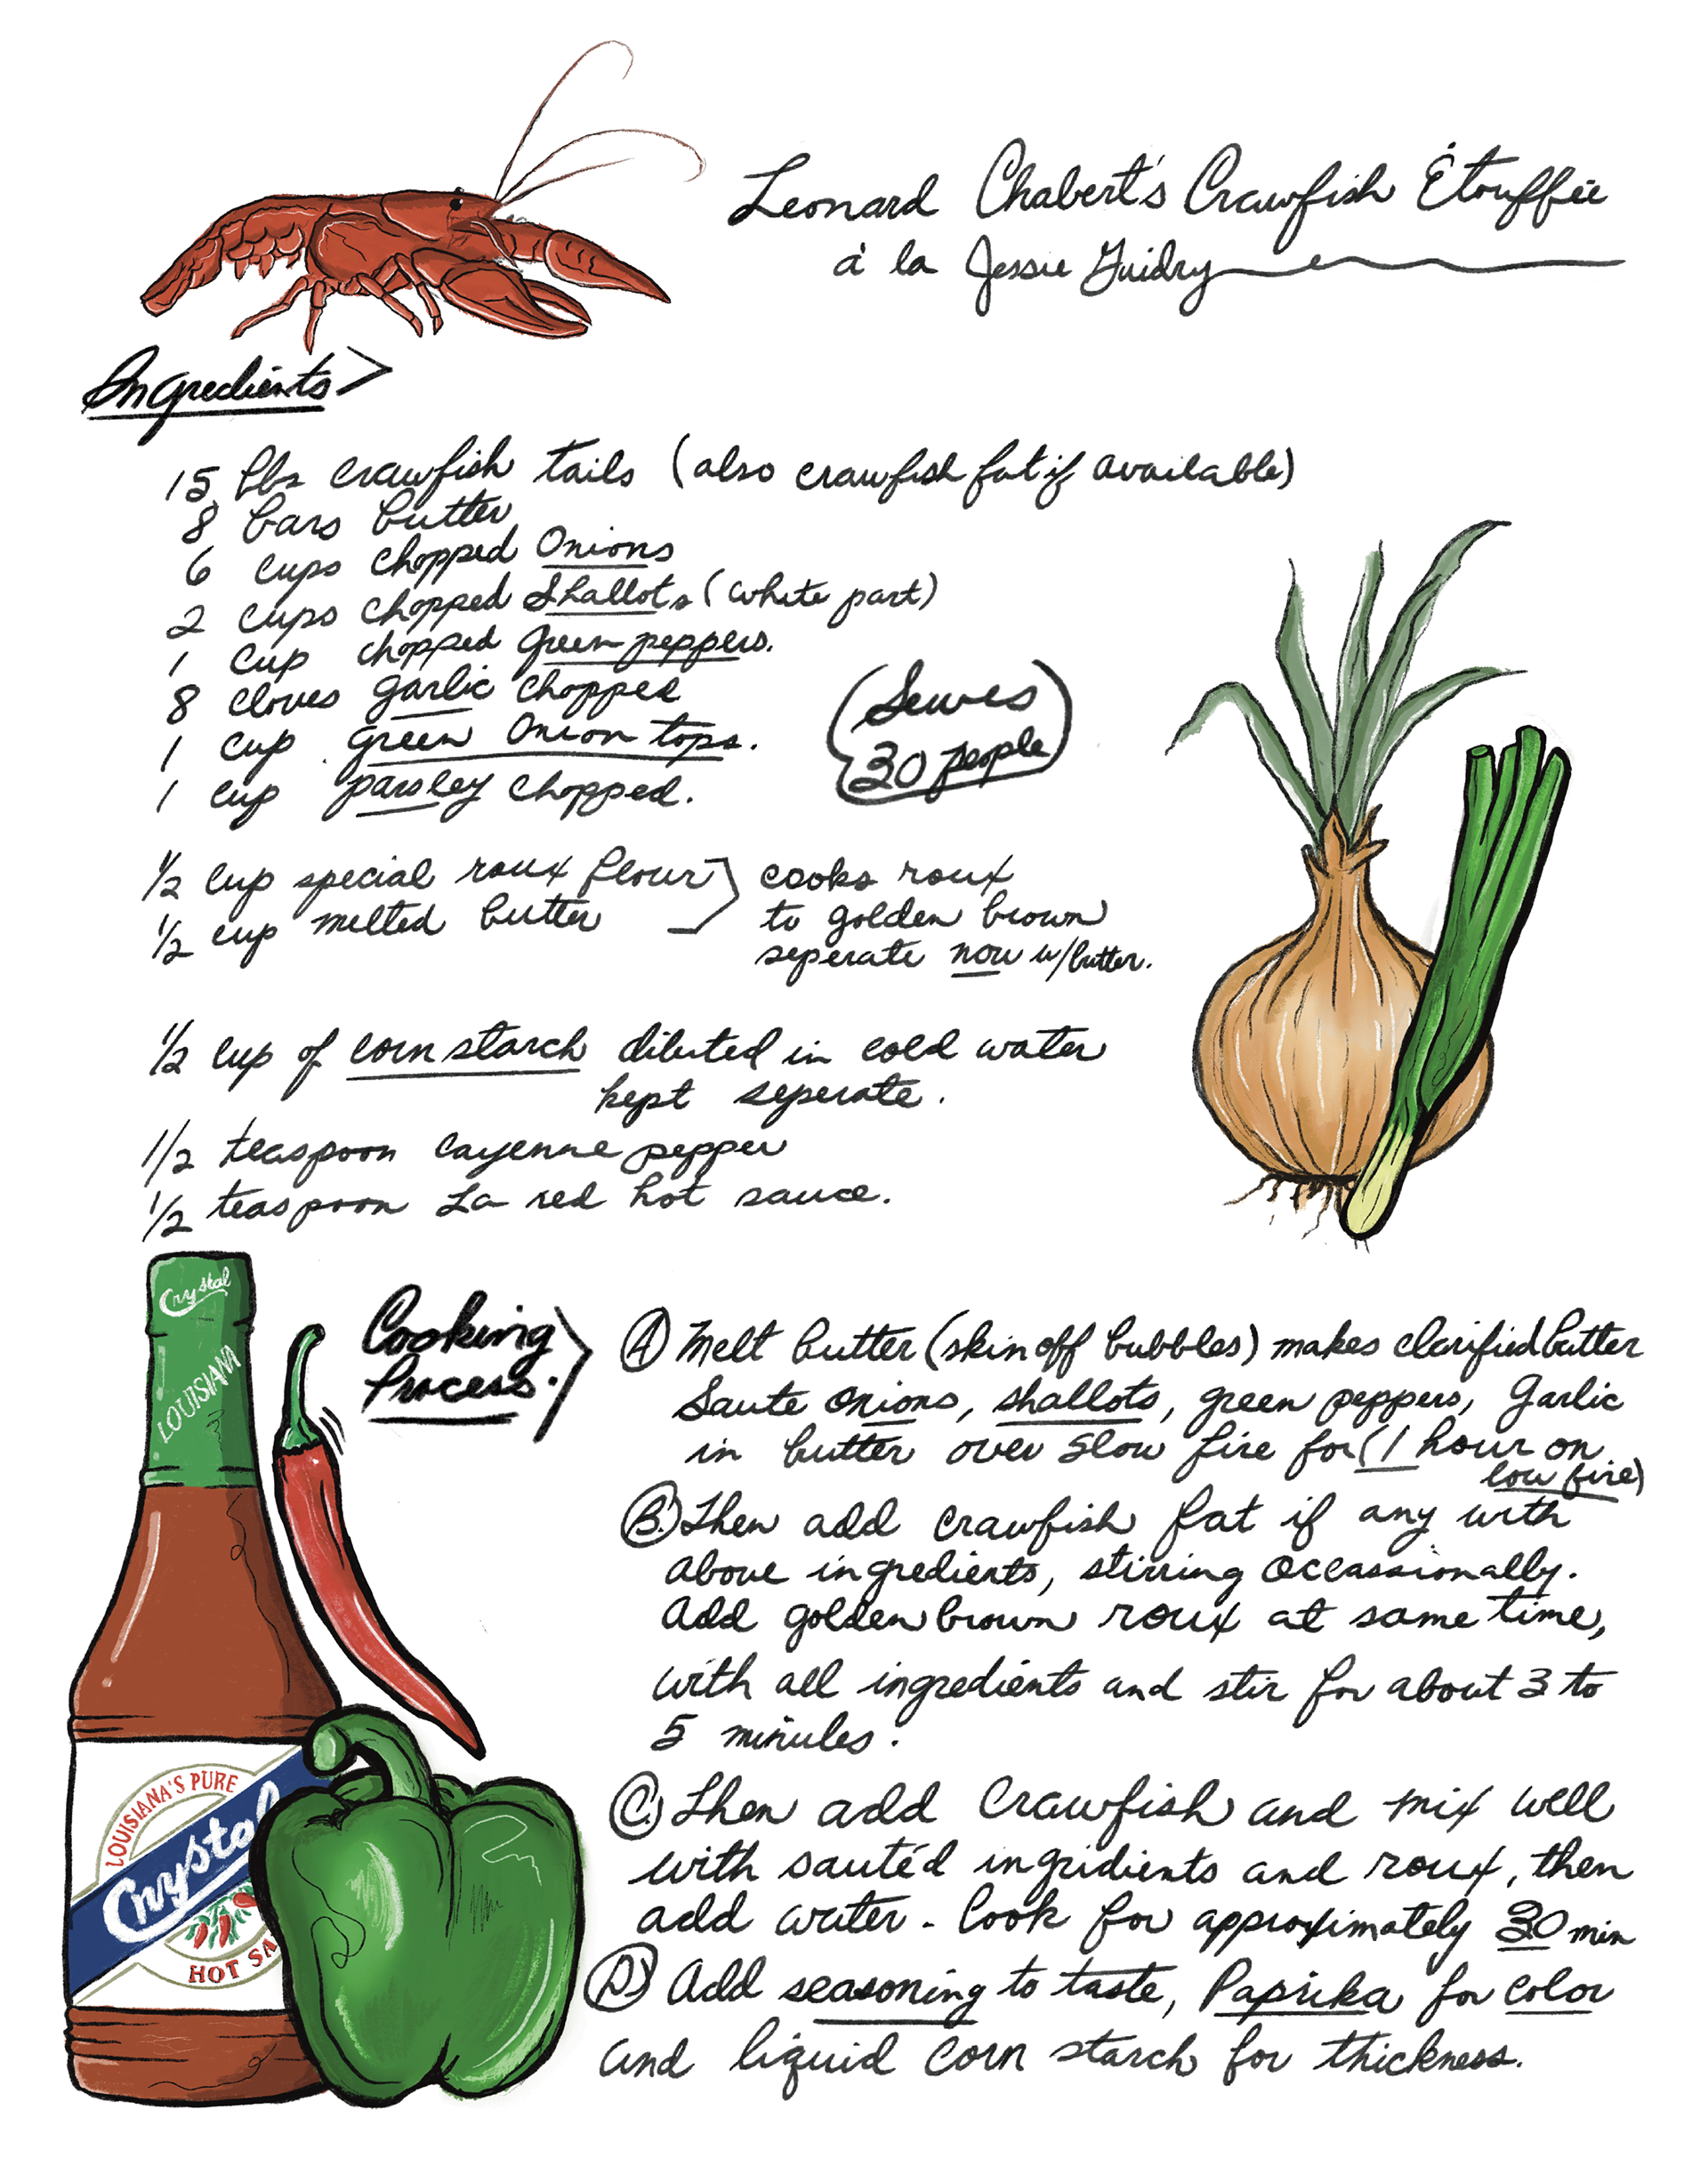 Leonard Chabert's Crawfish Étouffée
à la Jessie Guidry
Ingredients >
15 lbs crawfish tails (also crawfish fat if available)
8 bars butter
6 cups chopped Onions
2 cups chopped Shallots (white part)
1 cup chopped green peppers.
8 cloves garlic chopped
1 cup green Onion tops.
1 cup parsley chopped.
(Serves
30 people)
1/2 cup special roux flour
1/2 cup melted butter
cooks roux
to golden brown
seperate now w/butter.
1/2 cup of corn starch diluted in cold water
kept seperate.
1/2 teaspoon cayenne pepper
1/2 teaspoon La red hot sauce.
Crystal
LOUISIANA
LOUISIANA'S PURE
Crystal
HOT SA
Cooking
Process.
A Melt butter (skin off bubbles) makes clarified butter
Saute onions, shallots, green peppers, Garlic
in butter over slow fire for (1 hour on
low fire)
B. Then add crawfish fat if any with
above ingredients, stirring occassionally.
Add golden brown roux at same time,
with all ingredients and stir for about 3 to
5 minules.
C. Then add Crawfish and mix well
with sauté'd ingridients and roux, then
add water. Cook for approximately 30 min
D. Add seasoning to taste, Paprika for color
and liquid corn starch for thickness.